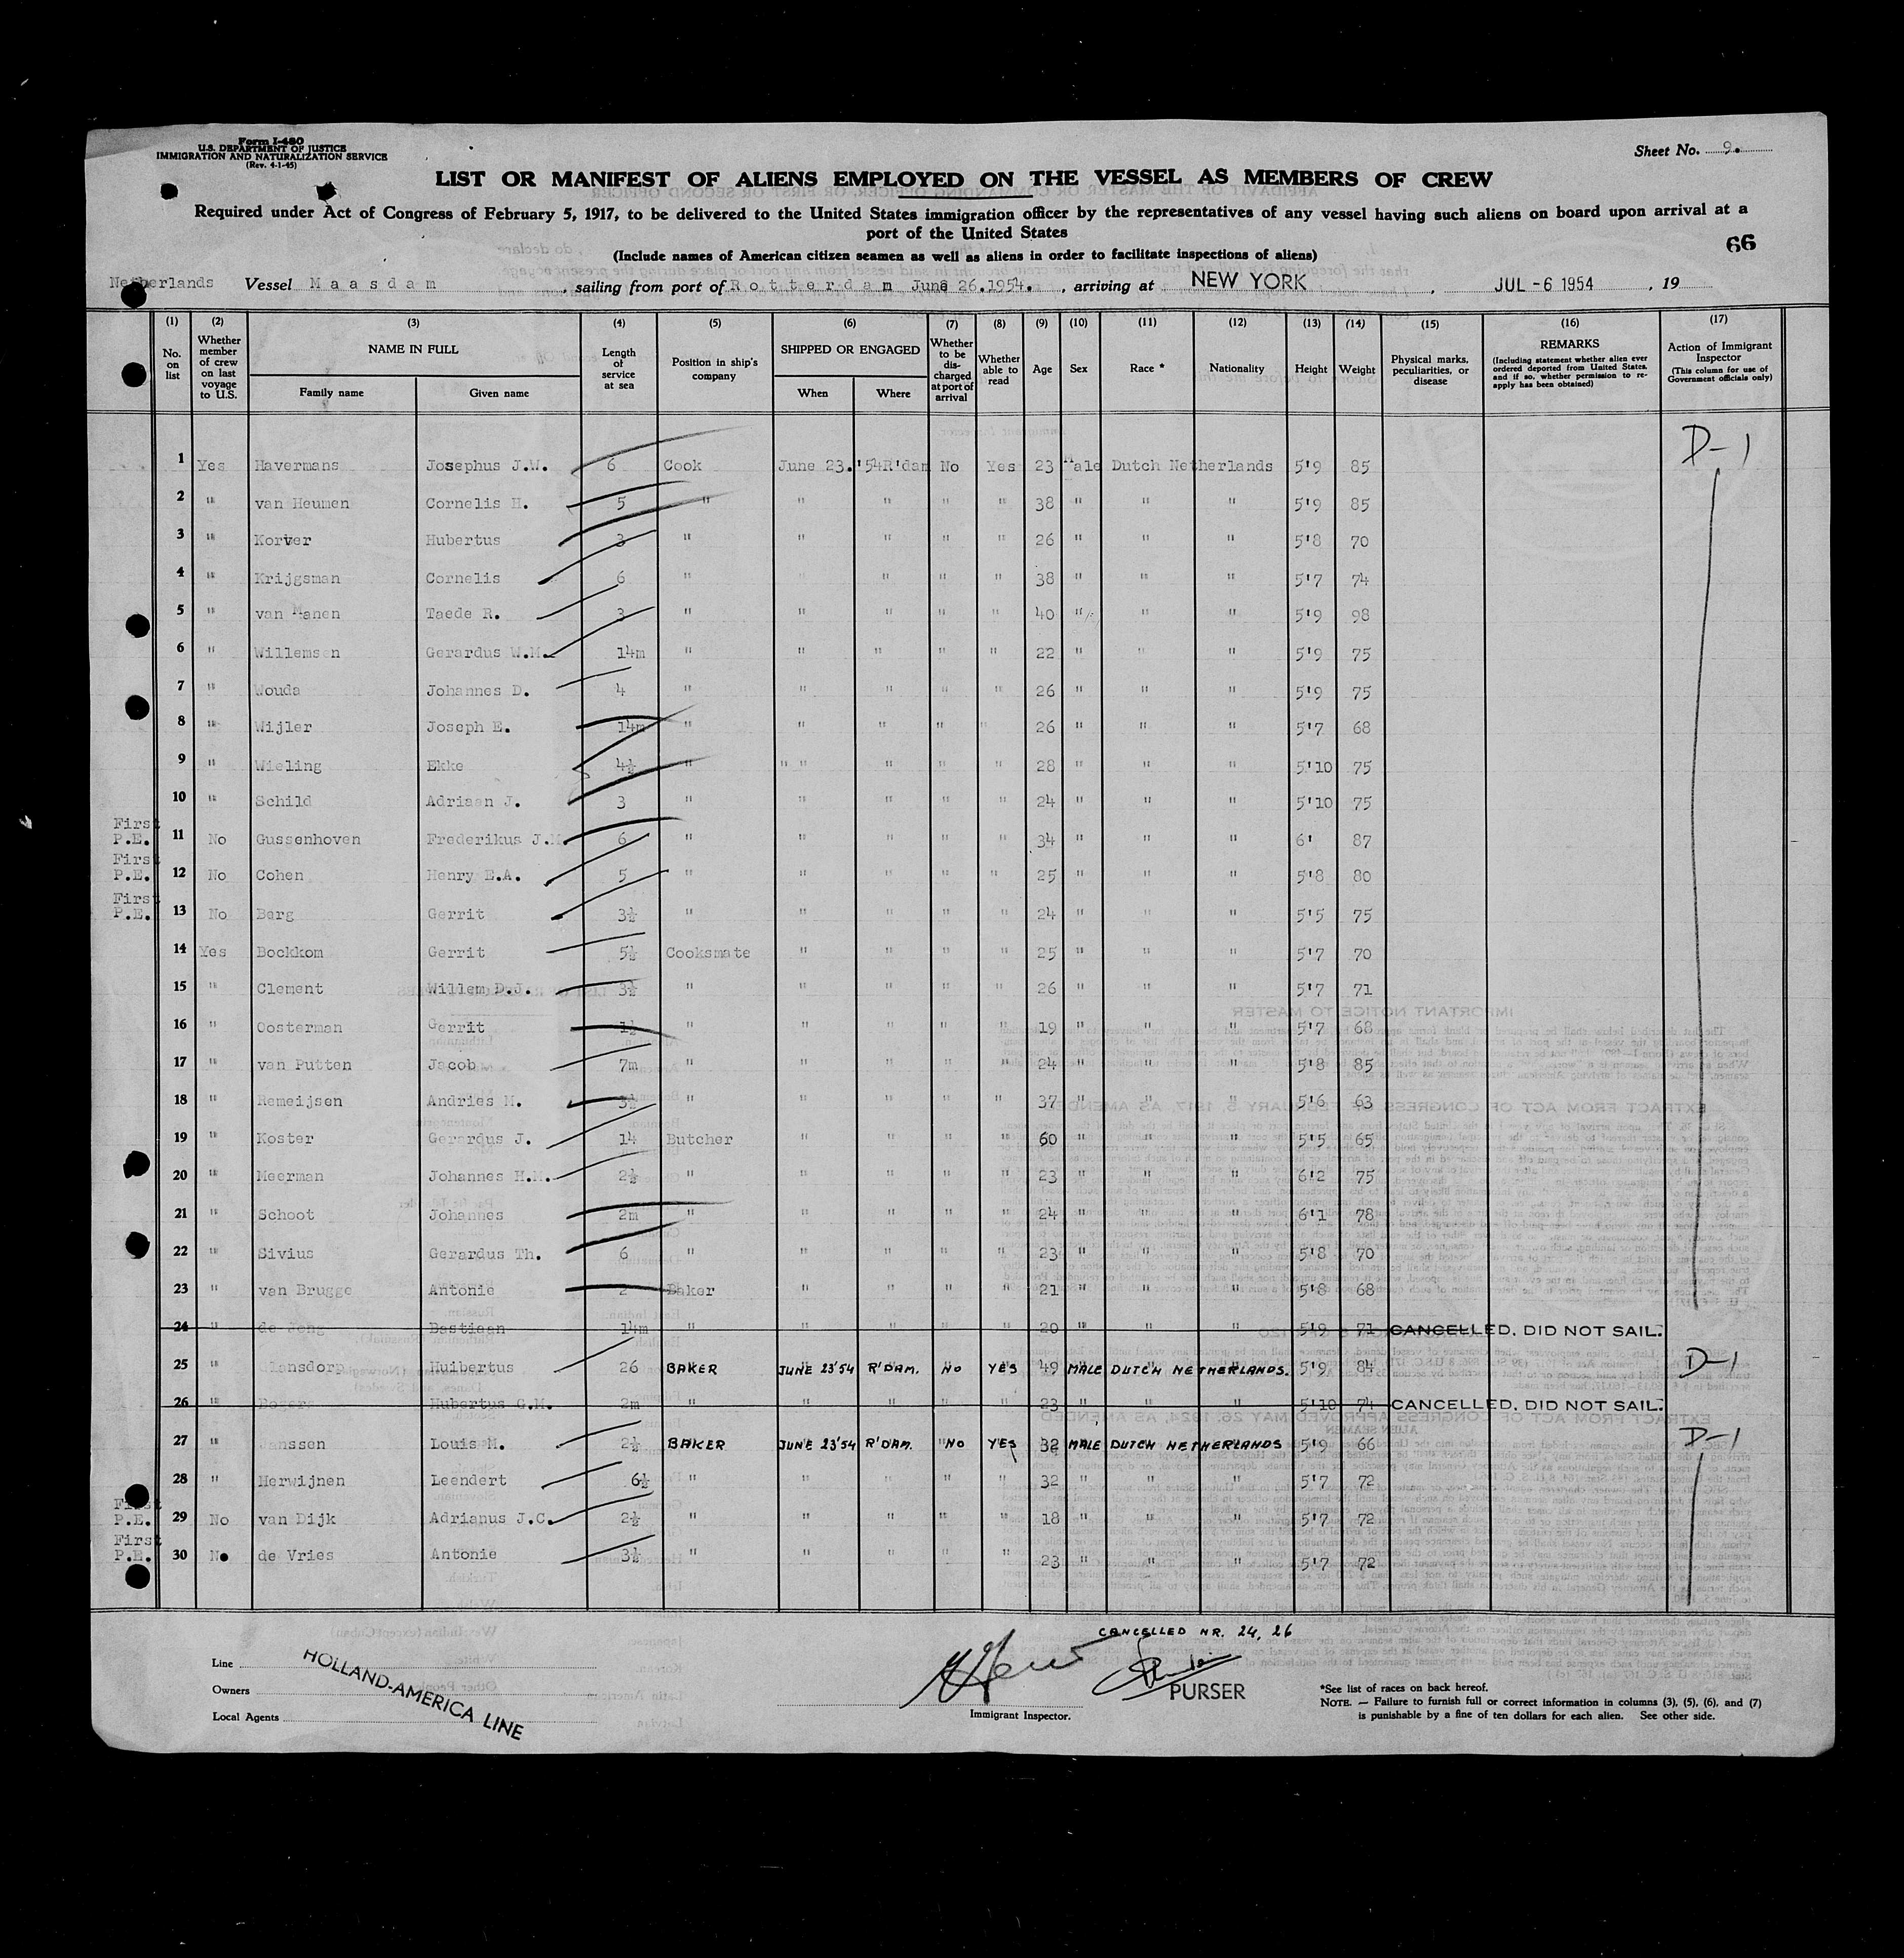 Form I-480
U.S. DEPARTMENT OF JUSTICE
IMMIGRATION AND NATURALIZATION SERVICE
(Rev. 4-1-45)
Sheet No. 9.
LIST OR MANIFEST OF ALIENS EMPLOYED ON THE VESSEL AS MEMBERS OF CREW
Required under Act of Congress of February 5, 1917, to be delivered to the United States immigration officer by the representatives of any vessel having such aliens on board upon arrival at a
port of the United States
66
(Include names of American citizen seamen as well as aliens in order to facilitate inspections of aliens)
Netherlands Vessel Maasdam, sailing from port of Rotterdam June 26.1954., arriving at NEW YORK, JUL -6 1954, 19
(1) (2) (3) (4) (5) (6) (7) (8) (9) (10) (11) (12) (13) (14) (15) (16) (17)
No. on list
Whether member of crew on last voyage to U.S.
NAME IN FULL
Family name Given name
Length of service at sea
Position in ship's company
SHIPPED OR ENGAGED
When Where
Whether to be discharged at port of arrival
Whether able to read
Age
Sex
Race *
Nationality
Height
Weight
Physical marks, peculiarities, or disease
REMARKS
(Including statement whether alien ever ordered deported from United States, and if so, whether permission to re-apply has been obtained)
Action of Immigrant Inspector
(This column for use of Government officials only)
1 Yes Havermans Josephus J.M. 6 Cook June 23.'54 R'dam No Yes 23 Male Dutch Netherlands 5'9 85 D-1
2 " van Heumen Cornelis H. 5 " " " " " 38 " " " 5'9 85
3 " Korver Hubertus 3 " " " " " 26 " " " 5'8 70
4 " Krijgsman Cornelis 6 " " " " " 38 " " " 5'7 74
5 " van Manen Taede R. 3 " " " " " 40 " " " 5'9 98
6 " Willemsen Gerardus W.M. 14m " " " " " 22 " " " 5'9 75
7 " Wouda Johannes D. 4 " " " " " 26 " " " 5'9 75
8 " Wijler Joseph E. 14m " " " " " 26 " " " 5'7 68
9 " Wieling Ekke 4½ " " " " " 28 " " " 5'10 75
10 " Schild Adriaan J. 3 " " " " " 24 " " " 5'10 75
First P.E. 11 No Gussenhoven Frederikus J.M. 6 " " " " " 34 " " " 6' 87
First P.E. 12 No Cohen Henry E.A. 5 " " " " " 25 " " " 5'8 80
First P.E. 13 No Berg Gerrit 3½ " " " " " 24 " " " 5'5 75
14 Yes Bockkom Gerrit 5½ Cooksmate " " " " 25 " " " 5'7 70
15 " Clement Willem D.J. 3½ " " " " " 26 " " " 5'7 71
16 " Oosterman Gerrit 1½ " " " " " 19 " " " 5'7 68
17 " van Putten Jacob 7m " " " " " 24 " " " 5'8 85
18 " Remeijsen Andries M. 3½ " " " " " 37 " " " 5'6 63
19 " Koster Gerardus J. 14 Butcher " " " " 60 " " " 5'5 65
20 " Meerman Johannes H.M. 2½ " " " " " 23 " " " 6'2 75
21 " Schoot Johannes 2m " " " " " 24 " " " 6'1 78
22 " Sivius Gerardus Th. 6 " " " " " 23 " " " 5'8 70
23 " van Brugge Antonie 2 Baker " " " " 21 " " " 5'8 68
24 " de Jong Bastiaan 14m " " " " " 20 " " " 5'9 71 CANCELLED. DID NOT SAIL.
25 " Huibertus 26 BAKER JUNE 23'54 R'DAM. NO YES 49 MALE DUTCH NETHERLANDS. 5'9 84 D-1
26 " Hubertus C.M. 2m " " " " " 23 " " " 5'10 74 CANCELLED. DID NOT SAIL.
27 " Janssen Louis M. 2½ BAKER JUNE 23'54 R'DAM. NO YES 32 MALE DUTCH NETHERLANDS 5'9 66 D-1
28 " Herwijnen Leendert 6½ " " " " " 32 " " " 5'7 72
First P.E. 29 No van Dijk Adrianus J.C. 2½ " " " " " 18 " " " 5'7 72
First P.E. 30 No de Vries Antonie 3½ " " " " " 23 " " " 5'7 72
CANCELLED NR. 24, 26
Line
Owners
Local Agents
HOLLAND-AMERICA LINE
Immigrant Inspector.
PURSER
*See list of races on back hereof.
NOTE. — Failure to furnish full or correct information in columns (3), (5), (6), and (7)
is punishable by a fine of ten dollars for each alien. See other side.